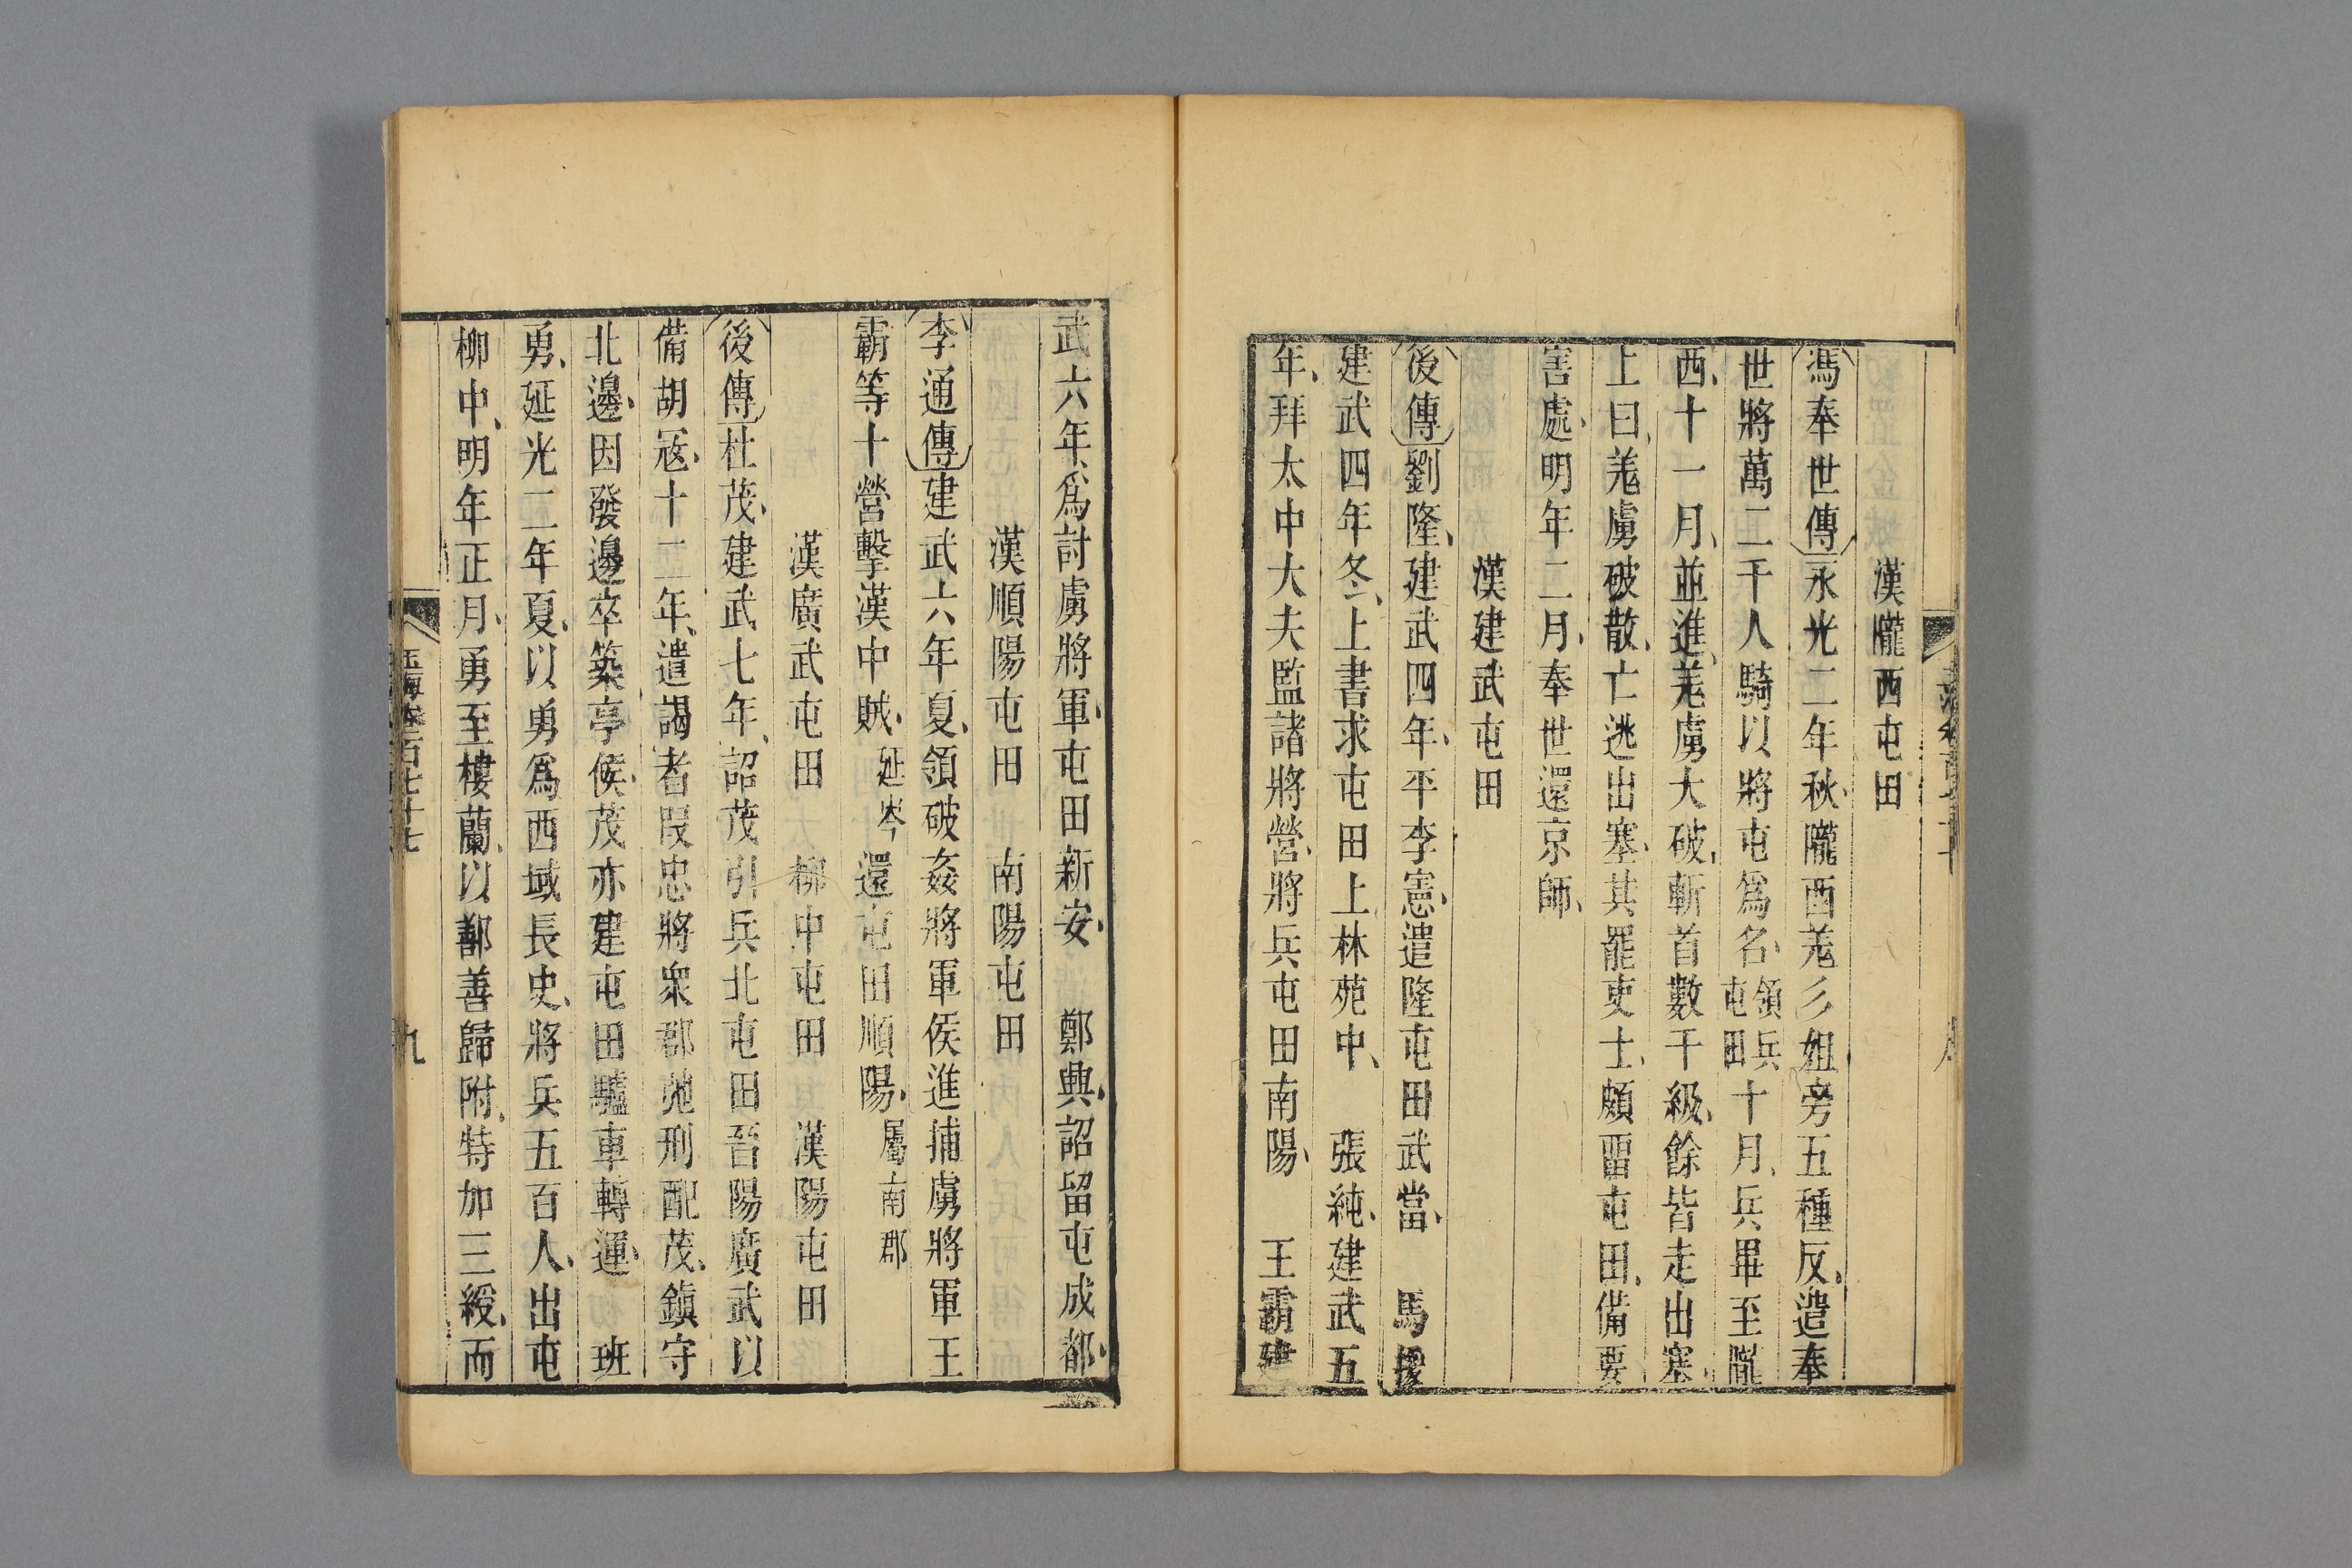 漢隴西屯田
馮奉世傳永光二年秋、隴西羌彡姐旁五種反、遣奉
世將萬二千人騎以將屯爲名、領兵屯田十月、兵畢至隴
西、十一月、並進、羌虜大破、斬首數千級、餘皆走出塞、
上曰、羌虜破散、亡逃出塞、其罷吏士、頗畱屯田、備要
害處、明年二月、奉世還京師、
漢建武屯田
後傳劉隆、建武四年、平李憲、遣隆屯田武當、　馬援
建武四年冬、上書求屯田上林苑中、　張純、建武五
年、拜太中大夫監諸將營、將兵屯田南陽、　王霸建
武六年、爲討虜將軍、屯田新安、　鄭興、詔留屯成都、
漢順陽屯田　南陽屯田
李通傳建武六年夏、領破姦將軍侯進捕虜將軍王
霸等十營擊漢中賊、延岑還屯田順陽、屬南郡
漢廣武屯田　柳中屯田　漢陽屯田
後傳杜茂、建武七年、詔茂引兵北屯田晉陽廣武以
備胡寇、十二年、遣謁者段忠將衆郡弛刑配茂、鎭守
北邊、因發邊卒築亭候、茂亦建屯田驢車轉運、　班
勇、延光二年夏、以勇爲西域長史、將兵五百人、出屯
柳中、明年正月、勇至樓蘭、以鄯善歸附、特加三綬、而
玉海卷一百七十七　九